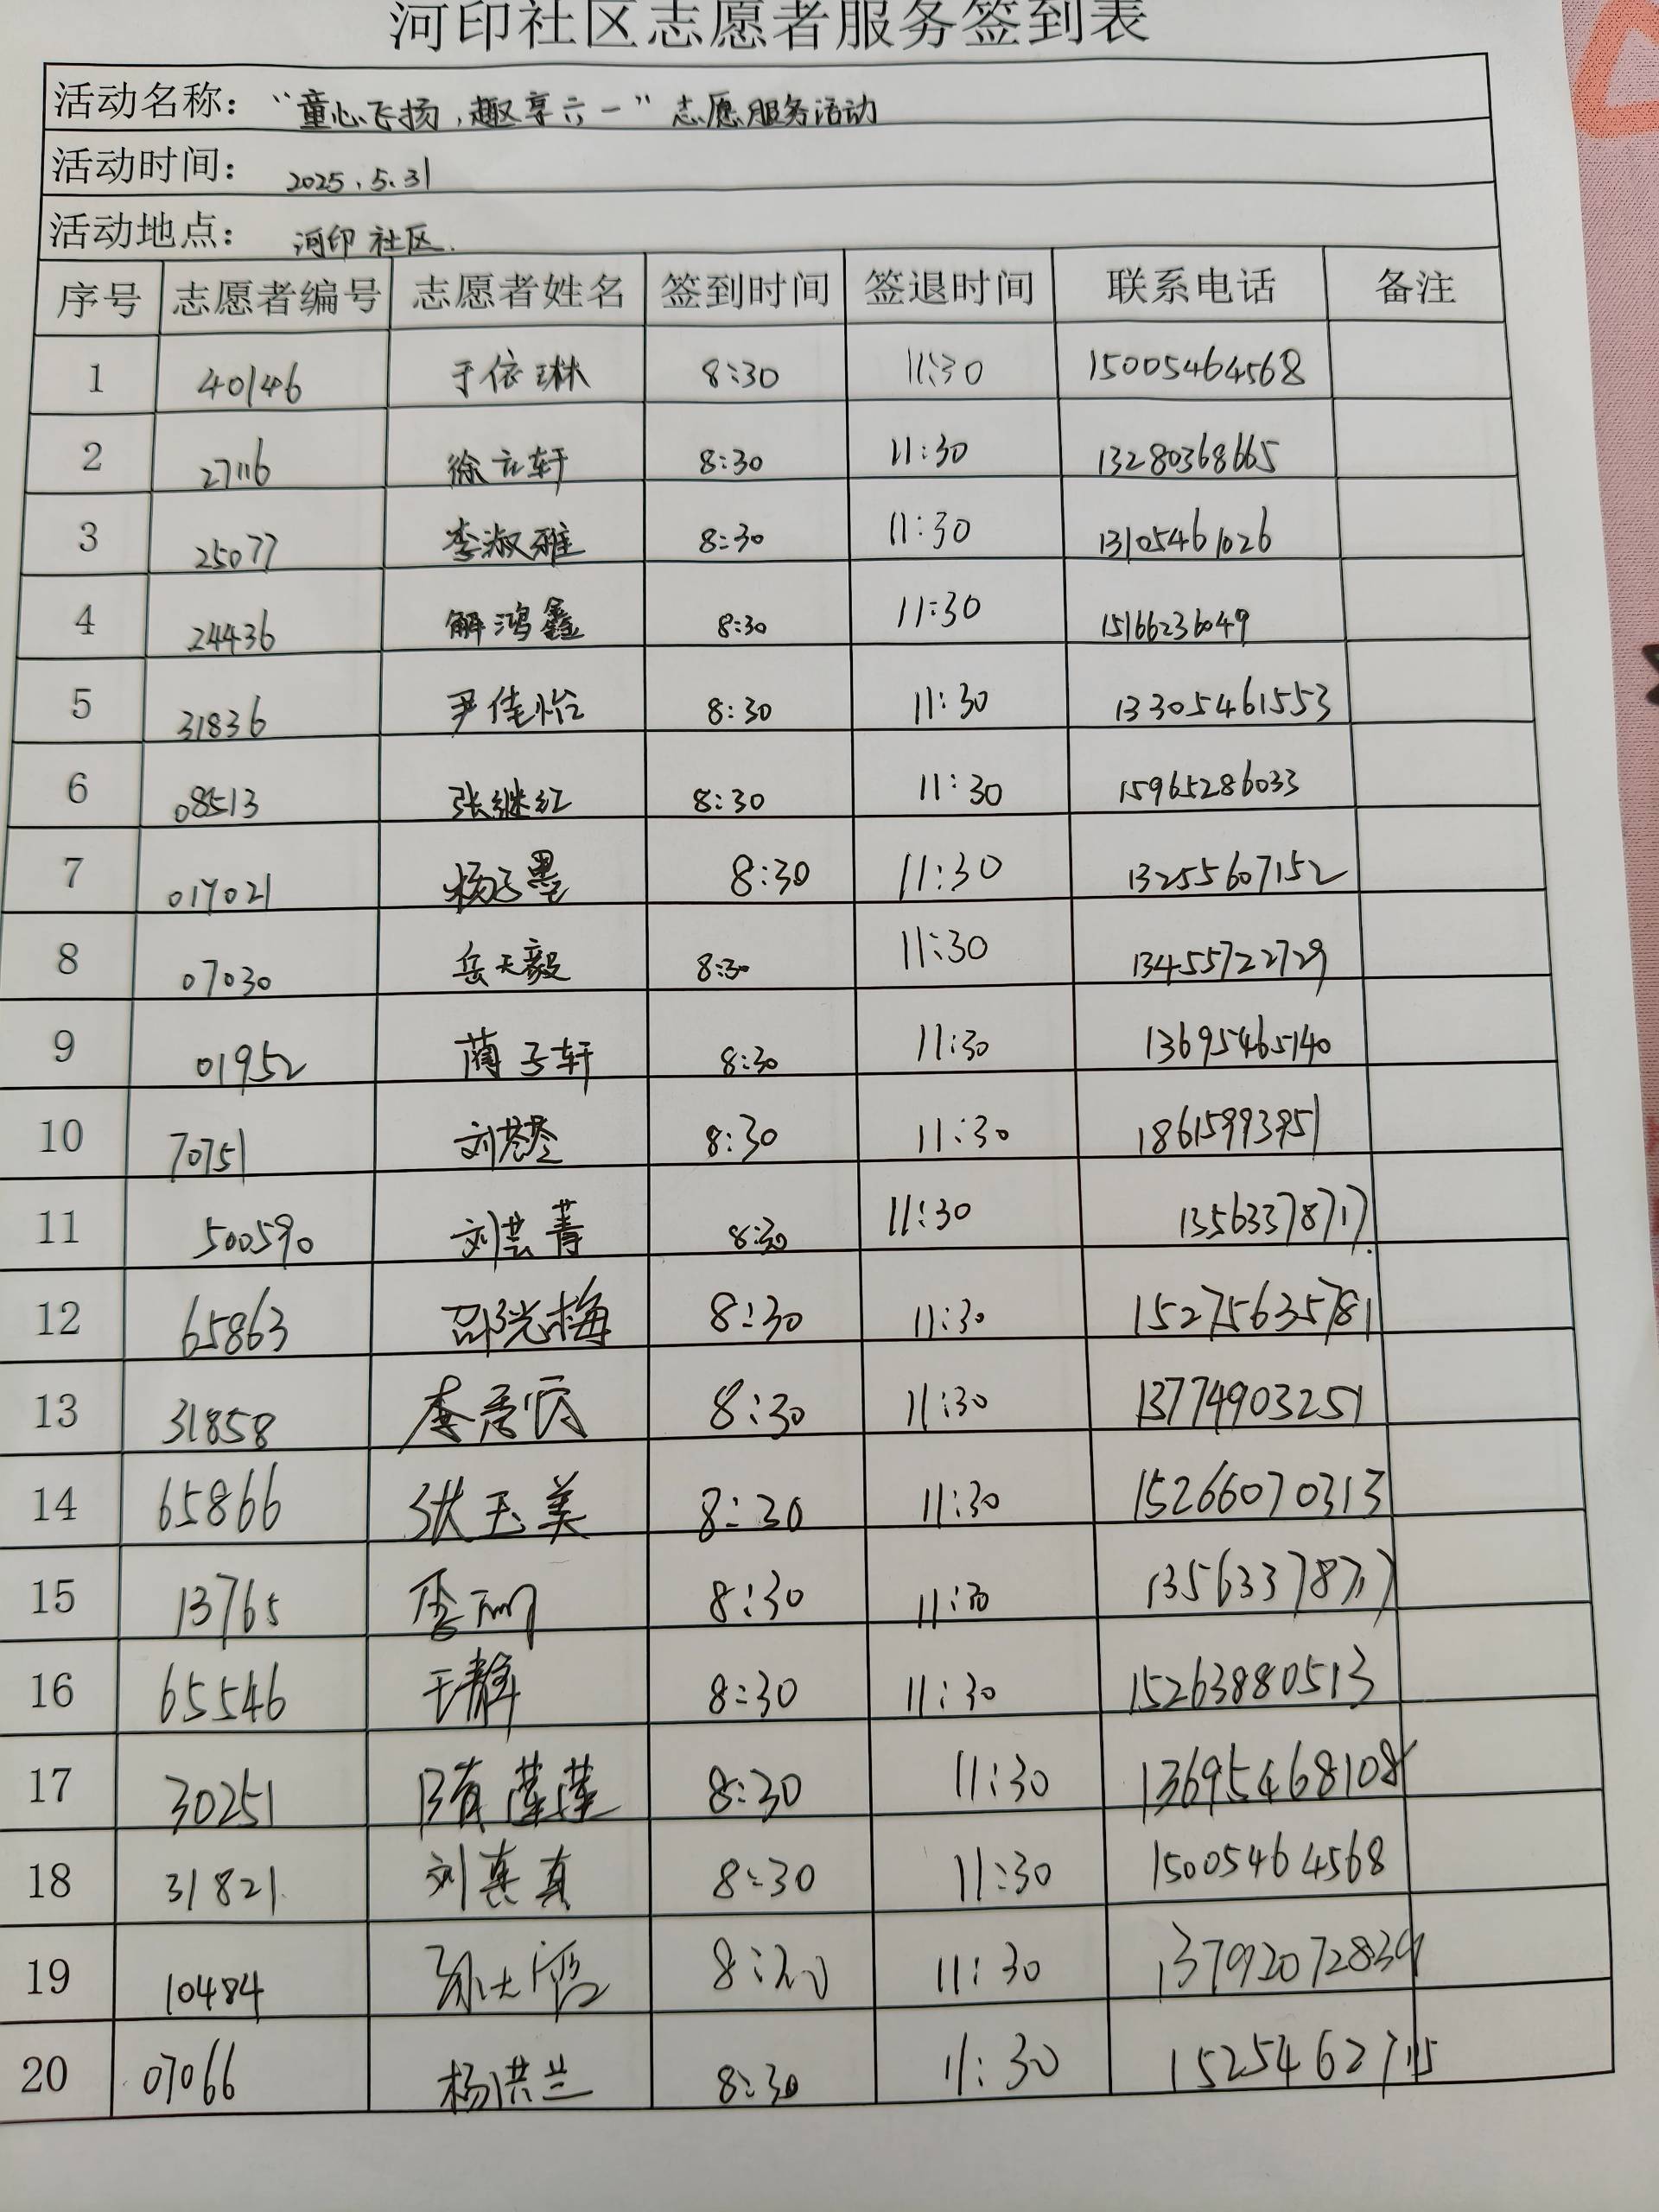 河印社区志愿者服务签到表
活动名称： “童心飞扬，趣享六一”志愿服务活动
活动时间： 2025.5.31
活动地点： 河印社区.
序号 志愿者编号 志愿者姓名 签到时间 签退时间 联系电话 备注
1 40146 于依琳 8:30 11:30 15005464568
2 27116 徐立轩 8:30 11:30 13280368665
3 25077 李淑雅 8:30 11:30 13105461026
4 24436 解鸿鑫 8:30 11:30 15166236049
5 31836 尹佳怡 8:30 11:30 13305461553
6 08513 张继红 8:30 11:30 15965286033
7 017021 杨子墨 8:30 11:30 13255607152
8 07030 岳天毅 8:30 11:30 13455722729
9 01952 蔺子轩 8:30 11:30 13695465140
10 70751 8:30 11:30 18615993951
11 500590 刘芸菁 8:30 11:30 13563378717
12 65863 邵光梅 8:30 11:30 15275635781
13 31858 8:30 11:30 13774903251
14 65866 张玉美 8:30 11:30 15266070313
15 13765 李丽 8:30 11:30 13563378717
16 65546 于静 8:30 11:30 15263880513
17 30251 隋莲莲 8:30 11:30 13695468108
18 31821 刘真真 8:30 11:30 15005464568
19 10484 8:30 11:30 13792072839
20 07066 杨洪兰 8:30 11:30 15254627115